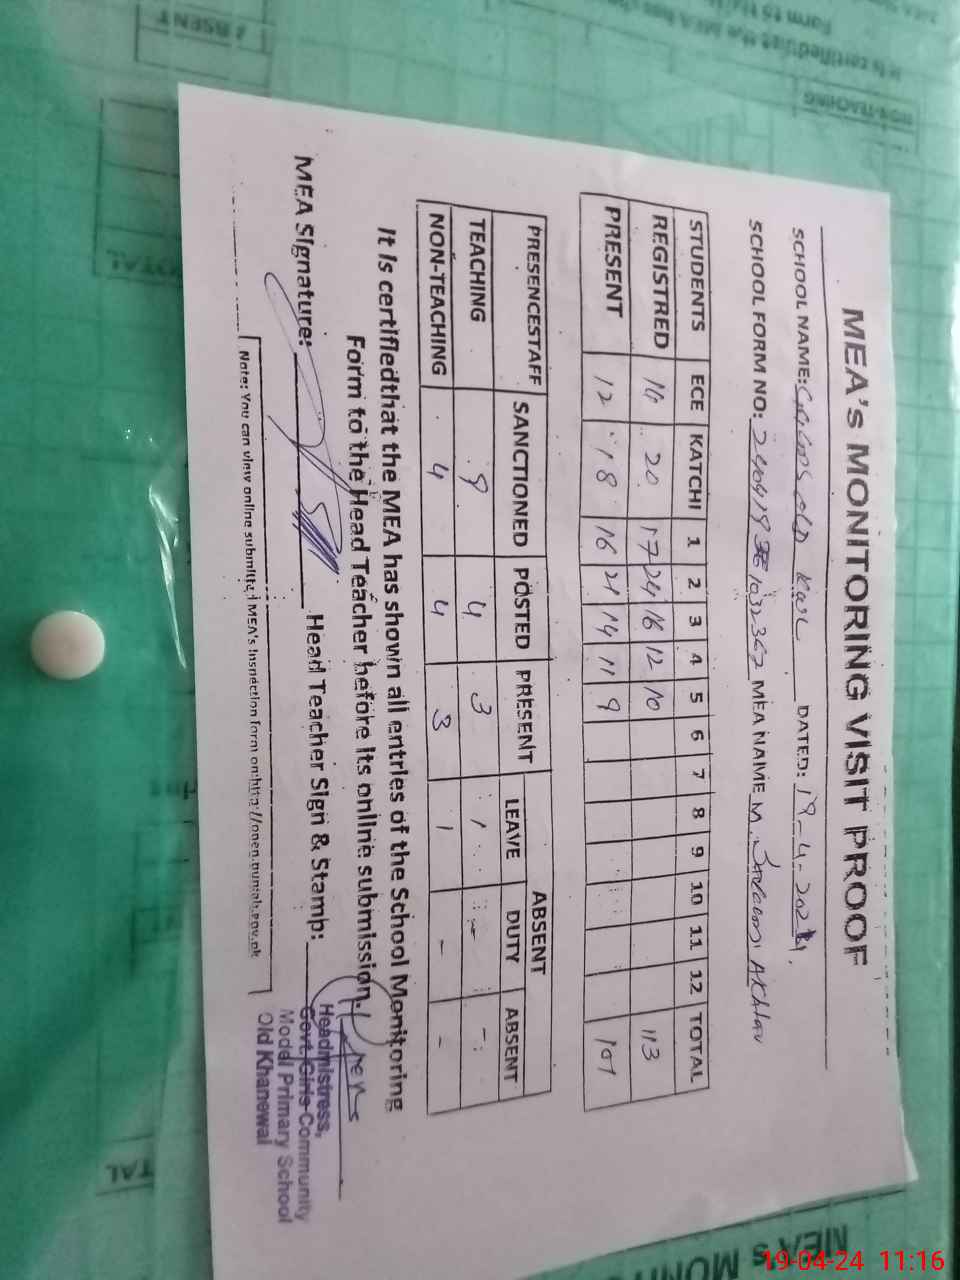 MEA's MONITORING VISIT PROOF
SCHOOL NAME: OLD KWL DATED: 19-4-2024.
SCHOOL FORM NO: MEA NAME M.
STUDENTS ECE KATCHI 1 2 3 4 5 6 7 8 9 10 11 12 TOTAL
REGISTRED 14 20 17 24 16 12 10 113
PRESENT 12 18 16 21 14 11 9 101
PRESENCESTAFF SANCTIONED POSTED PRESENT ABSENT
LEAVE DUTY ABSENT
TEACHING 9 4 3 1 - -
NON-TEACHING 4 4 3 1 - -
It Is certifiedthat the MEA has shown all entries of the School Monitoring
Form to the Head Teacher before its online submission.
MEA Signature: Head Teacher Sign & Stamp:
Headmistress,
Govt. Girls Community
Model Primary School
Old Khanewal
Note: You can view online submitted MEA's Inspection form on:http://open.punjab.gov.pk
MEA'S MONI
19-04-24 11:16